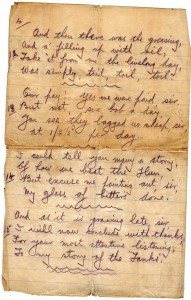 4
And then there was the greasing,
And a' filling up with oil,
Take it from me the livelong day,
Was simply toil, toil, toil.
Our pay: Yes we were paid sir,
But not six bob a day
You see they bagged us cheap sir
at 1/2 per day
I could tell you many a story,
Of how we beat the Hun,
But excuse me pointing out, sir
My glass of bitter's done.
And as it is growing late sir
I will now conclude with thanks,
For your most attentive listening,
To my story of the Tanks.